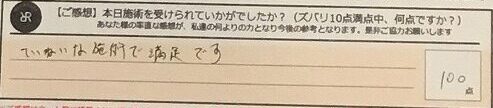 R
【ご感想】本日施術を受けられていかがでしたか?(ズバリ10点満点中、何点ですか?)
あなた様の率直な感想が、私達の何よりの力となり今後の参考となります。是非ご協力お願いします
ていねいな施術で満足です
100点